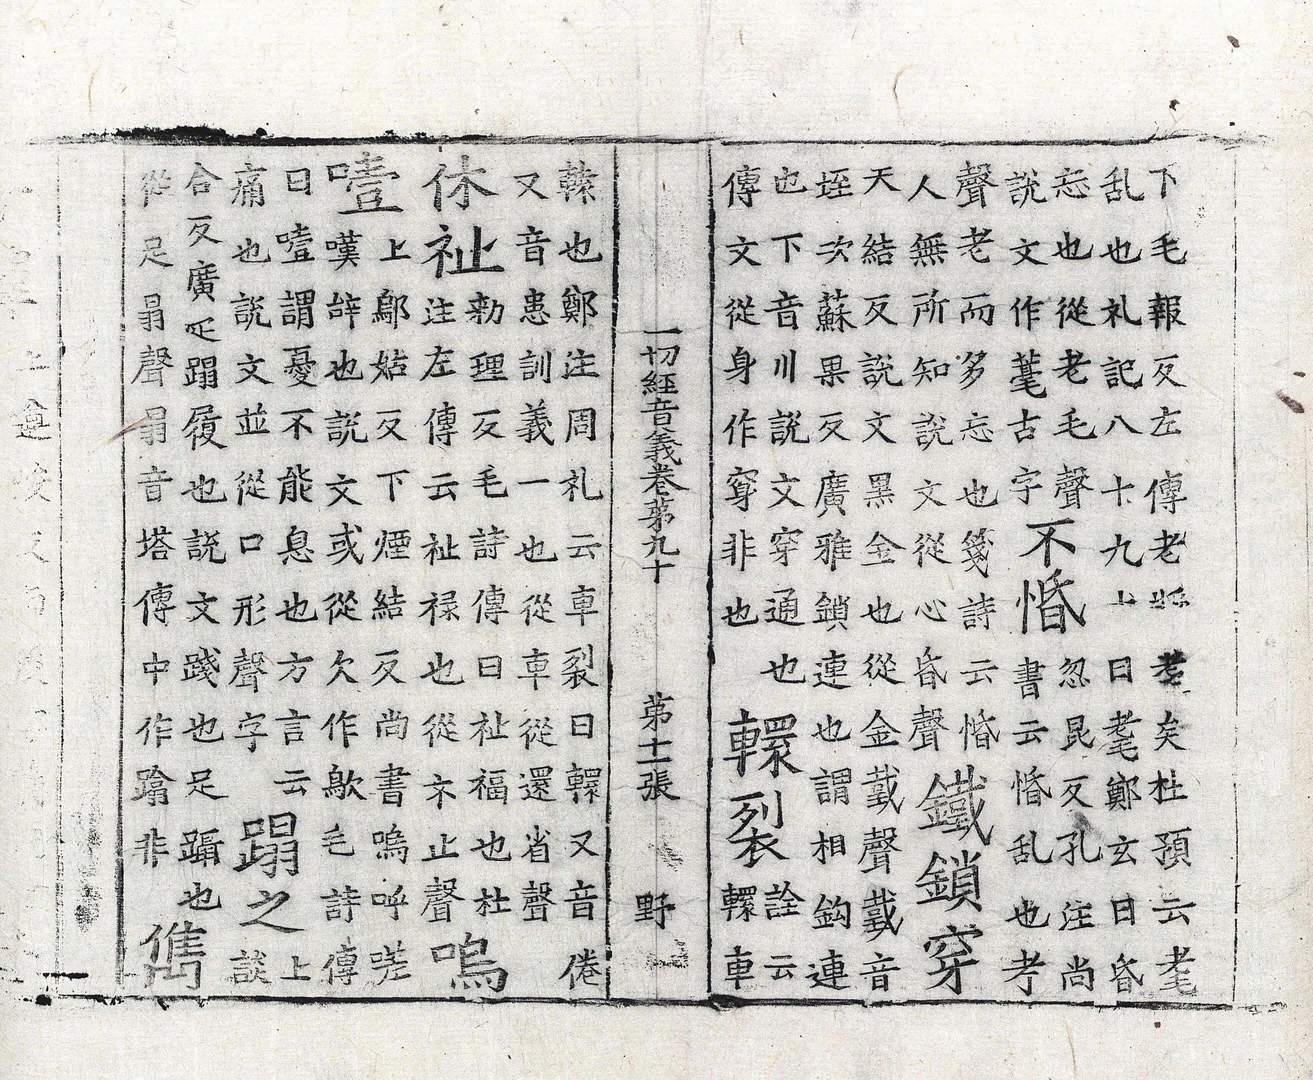 下毛報反左傳老將耄矣杜預云耄
乱也礼記八十九十曰耄鄭玄曰昏
忘也從老毛聲
說文作薹古字
不惽
忽昆反孔注尚
書云惽乱也考
聲老而多忘也箋詩云惽
人無所知說文從心昏聲
鐵鎖穿
天結反說文黑金也從金𢧜聲𢧜音
垤次蘇果反廣雅鎖連也謂相鈎連
也下音川說文穿通也
傳文從身作窮非也
轘裂
詮云
轘車
一切經音義卷第九十 第十一張 野
轅也鄭注周礼云車裂曰轘又音倦
又音患訓義一也從車從還省聲
休祉
勑理反毛詩傳曰祉福也杜
注左傳云祉禄也從示止聲
嗚
噎
上鄔姑反下煙結反尚書嗚呼嗟
嘆辞也說文或從欠作歍毛詩傳
曰噎謂憂不能息也方言云
痛也說文並從口形聲字
蹋之
上
談
合反廣疋蹋履也說文踐也足躡也
從足𦐇聲𦐇音塔傳中作蹹非
雋